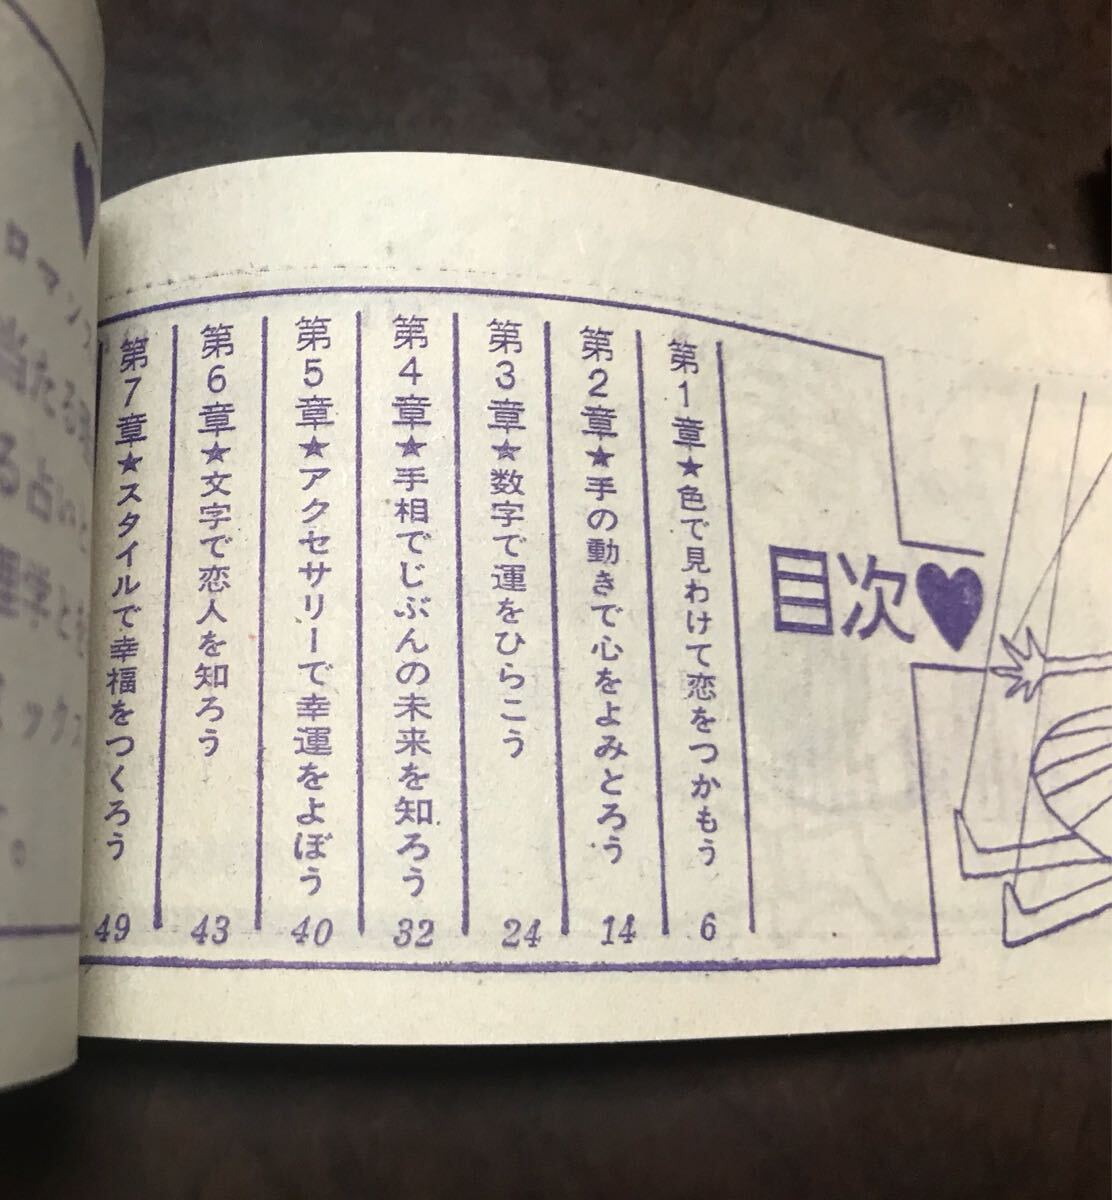 目次♥
第1章★色で見わけて恋をつかもう 6
第2章★手の動きで心をよみとろう 14
第3章★数字で運をひらこう 24
第4章★手相でじぶんの未来を知ろう 32
第5章★アクセサリーで幸運をよぼう 40
第6章★文字で恋人を知ろう 43
第7章★スタイルで幸福をつくろう 49
♥
ロマン
当たる
る占い
理学と
ックス